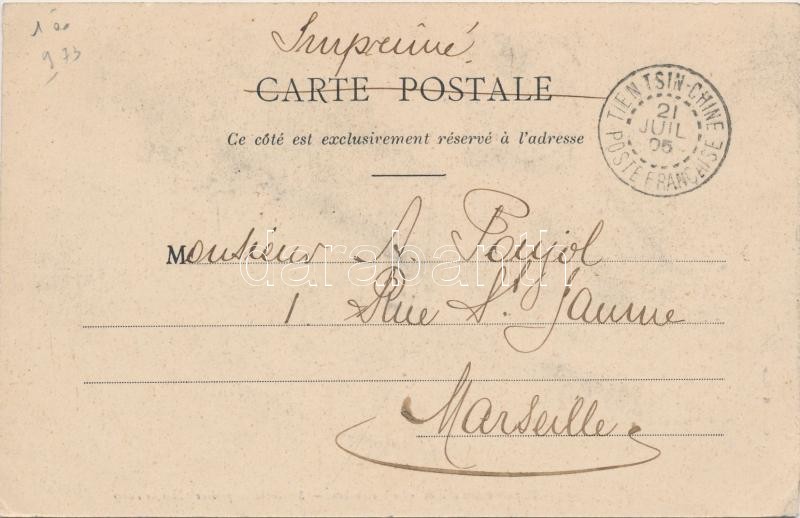 1 00
9 73
Imprimé
CARTE POSTALE
Ce côté est exclusirement réservé à l'adresse
TIENTSIN-CHINE
21
JUIL
05
POSTE FRANÇAISE
Monsieur A. Poujol
1. Rue St Jaume
Marseille
darabanth